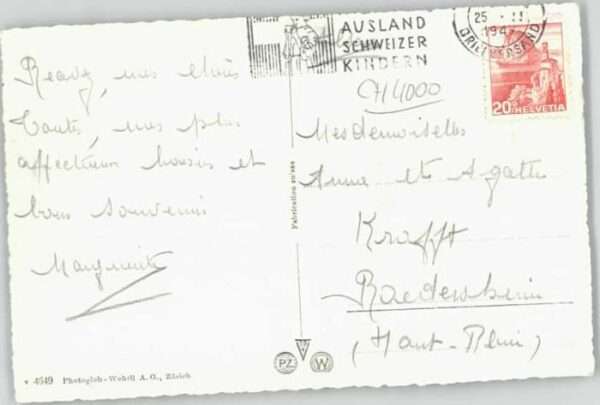 AUSLAND
SCHWEIZER
KINDERN
25
194
BRIEFVERSAND
20
HELVETIA
CH4000
Recevez, mes chères
toutes, mes plus
affectueux baisers et
bons souvenirs
Marguerite
Mesdemoiselles
Anna et Agathe
Krafft
Raedersheim
(Haut-Rhin)
Fabrication suisse
4649 Photoglob-Wehrli A.G., Zürich
PZ W